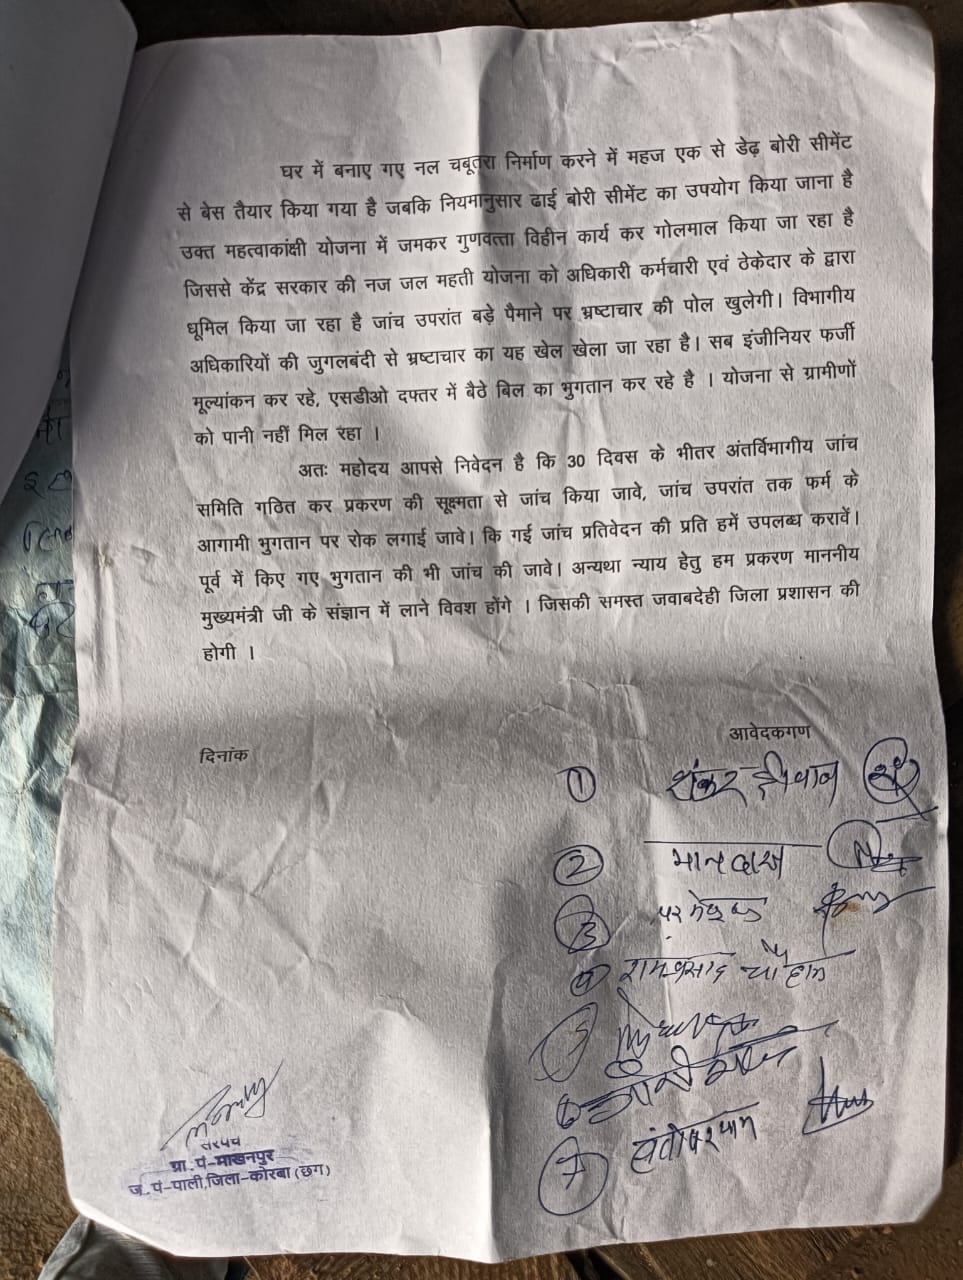 घर में बनाए गए नल चबूतरा निर्माण करने में महज एक से डेढ़ बोरी सीमेंट
से बेस तैयार किया गया है जबकि नियमानुसार ढाई बोरी सीमेंट का उपयोग किया जाना है
उक्त महत्वाकांक्षी योजना में जमकर गुणवत्ता विहीन कार्य कर गोलमाल किया जा रहा है
जिससे केंद्र सरकार की नज जल महती योजना को अधिकारी कर्मचारी एवं ठेकेदार के द्वारा
धूमिल किया जा रहा है जांच उपरांत बड़े पैमाने पर भ्रष्टाचार की पोल खुलेगी। विभागीय
अधिकारियों की जुगलबंदी से भ्रष्टाचार का यह खेल खेला जा रहा है। सब इंजीनियर फर्जी
मूल्यांकन कर रहे, एसडीओ दफ्तर में बैठे बिल का भुगतान कर रहे है । योजना से ग्रामीणों
को पानी नहीं मिल रहा ।
अतः महोदय आपसे निवेदन है कि 30 दिवस के भीतर अंतर्विभागीय जांच
समिति गठित कर प्रकरण की सूक्ष्मता से जांच किया जावे, जांच उपरांत तक फर्म के
आगामी भुगतान पर रोक लगाई जावे। कि गई जांच प्रतिवेदन की प्रति हमें उपलब्ध करावें।
पूर्व में किए गए भुगतान की भी जांच की जावे। अन्यथा न्याय हेतु हम प्रकरण माननीय
मुख्यमंत्री जी के संज्ञान में लाने विवश होंगे । जिसकी समस्त जवाबदेही जिला प्रशासन की
होगी ।
आवेदकगण
दिनांक
1 शंकर
2
3
4 रामप्रसाद चौहान
5
6
7
सरपंच
ग्रा.पं-माखनपुर
ज.पं-पाली,जिला-कोरबा (छग)